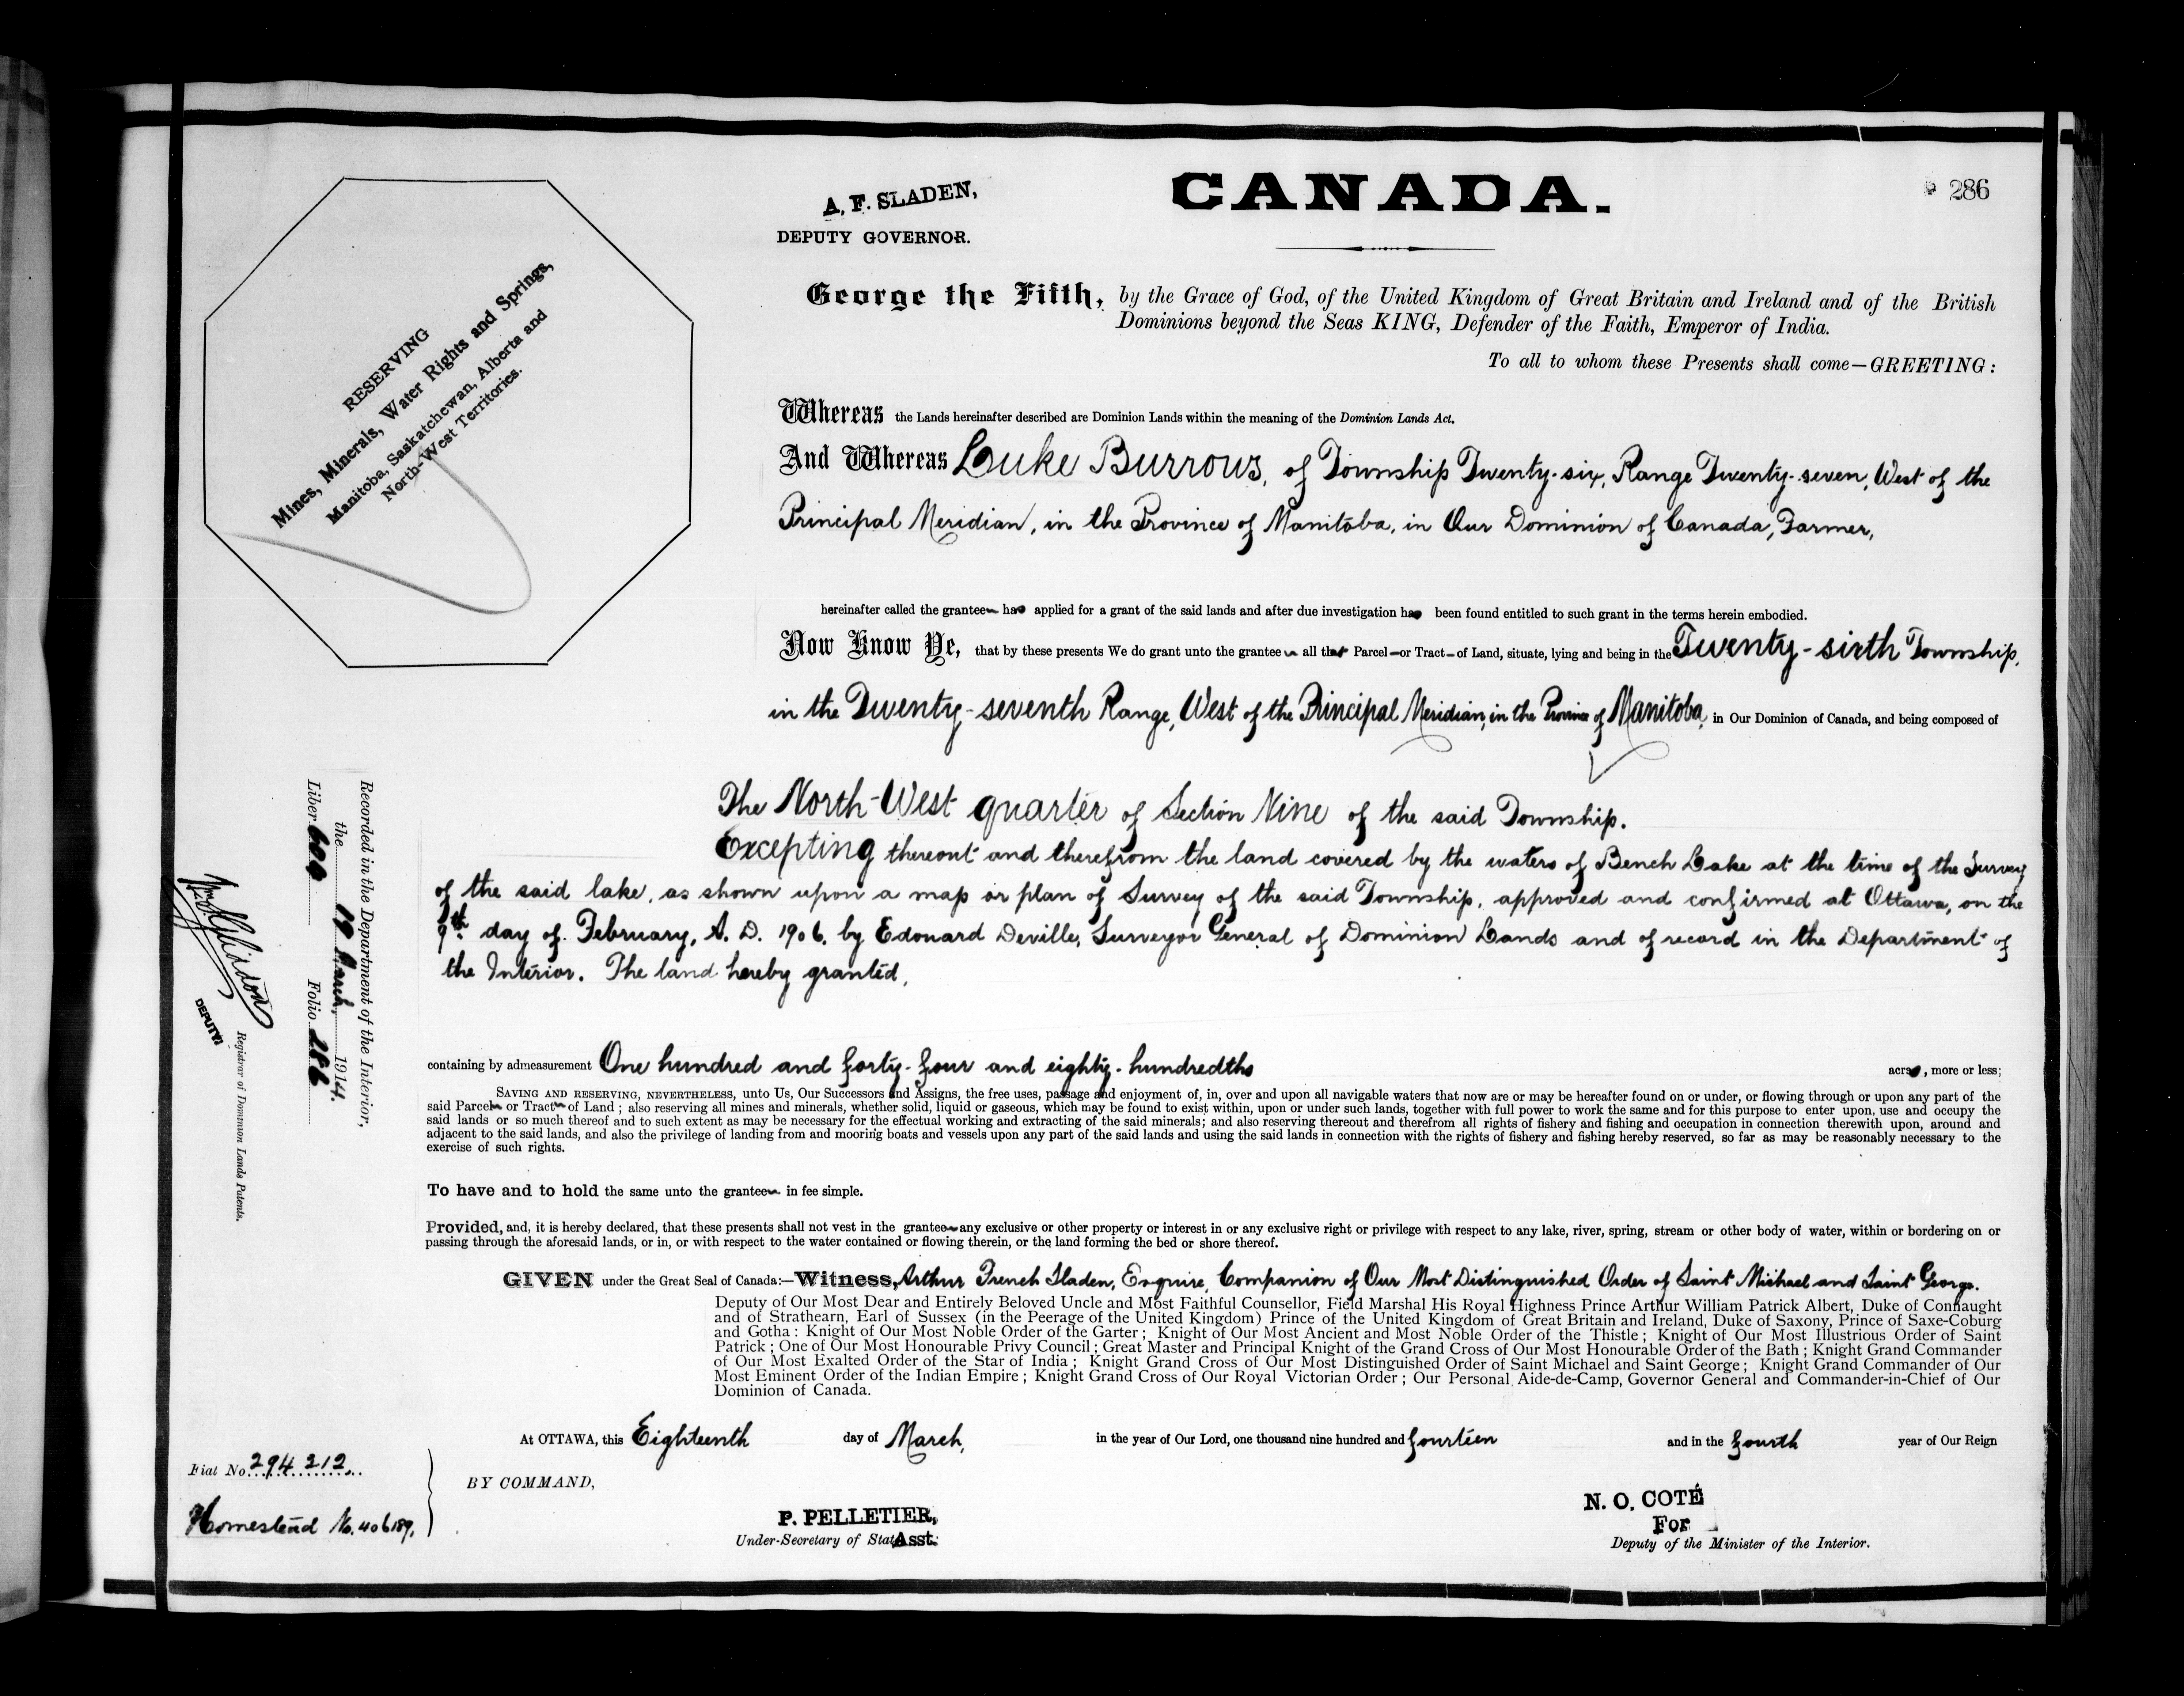 CANADA.
286
A. F. SLADEN,
DEPUTY GOVERNOR.
RESERVING
Mines, Minerals, Water Rights and Springs,
Manitoba, Saskatchewan, Alberta and
North-West Territories.
George the Fifth, by the Grace of God, of the United Kingdom of Great Britain and Ireland and of the British
Dominions beyond the Seas KING, Defender of the Faith, Emperor of India.
To all to whom these Presents shall come—GREETING:
Whereas the Lands hereinafter described are Dominion Lands within the meaning of the Dominion Lands Act.
And Whereas Luke Burrows, of Township Twenty-six, Range Twenty-seven, West of the
Principal Meridian, in the Province of Manitoba, in Our Dominion of Canada, Farmer,
hereinafter called the grantee has applied for a grant of the said lands and after due investigation has been found entitled to such grant in the terms herein embodied.
Now Know Ye, that by these presents We do grant unto the grantee all that Parcel or Tract of Land, situate, lying and being in the Twenty-sixth Township,
in the Twenty-seventh Range, West of the Principal Meridian, in the Province of Manitoba, in Our Dominion of Canada, and being composed of
The North-West quarter of Section Nine of the said Township.
Excepting thereout and therefrom the land covered by the waters of Bench Lake at the time of the Survey
of the said lake, as shown upon a map or plan of Survey of the said Township, approved and confirmed at Ottawa, on the
9th day of February, A. D. 1906, by Edouard Deville, Surveyor General of Dominion Lands and of record in the Department of
the Interior. The land hereby granted,
containing by admeasurement One hundred and forty-four and eighty-hundredths acres, more or less;
SAVING AND RESERVING, NEVERTHELESS, unto Us, Our Successors and Assigns, the free uses, passage and enjoyment of, in, over and upon all navigable waters that now are or may be hereafter found on or under, or flowing through or upon any part of the
said Parcel or Tract of Land; also reserving all mines and minerals, whether solid, liquid or gaseous, which may be found to exist within, upon or under such lands, together with full power to work the same and for this purpose to enter upon, use and occupy the
said lands or so much thereof and to such extent as may be necessary for the effectual working and extracting of the said minerals; and also reserving thereout and therefrom all rights of fishery and fishing and occupation in connection therewith upon, around and
adjacent to the said lands, and also the privilege of landing from and mooring boats and vessels upon any part of the said lands and using the said lands in connection with the rights of fishery and fishing hereby reserved, so far as may be reasonably necessary to the
exercise of such rights.
To have and to hold the same unto the grantee in fee simple.
Provided, and, it is hereby declared, that these presents shall not vest in the grantee any exclusive or other property or interest in or any exclusive right or privilege with respect to any lake, river, spring, stream or other body of water, within or bordering on or
passing through the aforesaid lands, or in, or with respect to the water contained or flowing therein, or the land forming the bed or shore thereof.
GIVEN under the Great Seal of Canada:—Witness, Arthur French Sladen, Esquire, Companion of Our Most Distinguished Order of Saint Michael and Saint George.
Deputy of Our Most Dear and Entirely Beloved Uncle and Most Faithful Counsellor, Field Marshal His Royal Highness Prince Arthur William Patrick Albert, Duke of Connaught
and of Strathearn, Earl of Sussex (in the Peerage of the United Kingdom) Prince of the United Kingdom of Great Britain and Ireland, Duke of Saxony, Prince of Saxe-Coburg
and Gotha: Knight of Our Most Noble Order of the Garter; Knight of Our Most Ancient and Most Noble Order of the Thistle; Knight of Our Most Illustrious Order of Saint
Patrick; One of Our Most Honourable Privy Council; Great Master and Principal Knight of the Grand Cross of Our Most Honourable Order of the Bath; Knight Grand Commander
of Our Most Exalted Order of the Star of India; Knight Grand Cross of Our Most Distinguished Order of Saint Michael and Saint George; Knight Grand Commander of Our
Most Eminent Order of the Indian Empire; Knight Grand Cross of Our Royal Victorian Order; Our Personal Aide-de-Camp, Governor General and Commander-in-Chief of Our
Dominion of Canada.
At OTTAWA, this Eighteenth day of March, in the year of Our Lord, one thousand nine hundred and fourteen and in the fourth year of Our Reign
BY COMMAND,
P. PELLETIER,
Under-Secretary of State Asst.
N. O. COTÉ
For
Deputy of the Minister of the Interior.
Fiat No. 294212
Homestead No. 406189.
Recorded in the Department of the Interior,
the 19 March, 1914.
Liber Folio 286
DEPUTY
Registrar of Dominion Lands Patents.